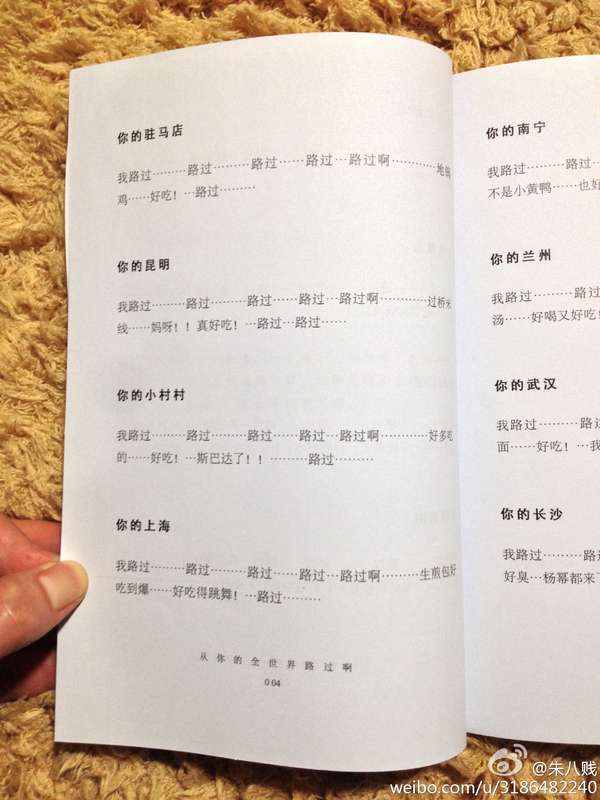 你的驻马店
我路过………路过………路过……路过…路过啊…………地锅
鸡……好吃！…路过………
你的昆明
我路过………路过………路过……路过…路过啊…………过桥米
线……妈呀！！真好吃！…路过…路过……
你的小村村
我路过………路过………路过……路过…路过啊…………好多吃
的……好吃！…斯巴达了！！………路过………
你的上海
我路过………路过………路过……路过…路过啊………生煎包好
吃到爆……好吃得跳舞！…路过………
从你的全世界路过啊
004
你的南宁
我路过………路过
不是小黄鸭……也好
你的兰州
我路过………路过
汤……好喝又好吃
你的武汉
我路过………路过
面……好吃！…我
你的长沙
我路过………路
好臭…杨幂都来
@朱八贱
weibo.com/u/3186482240